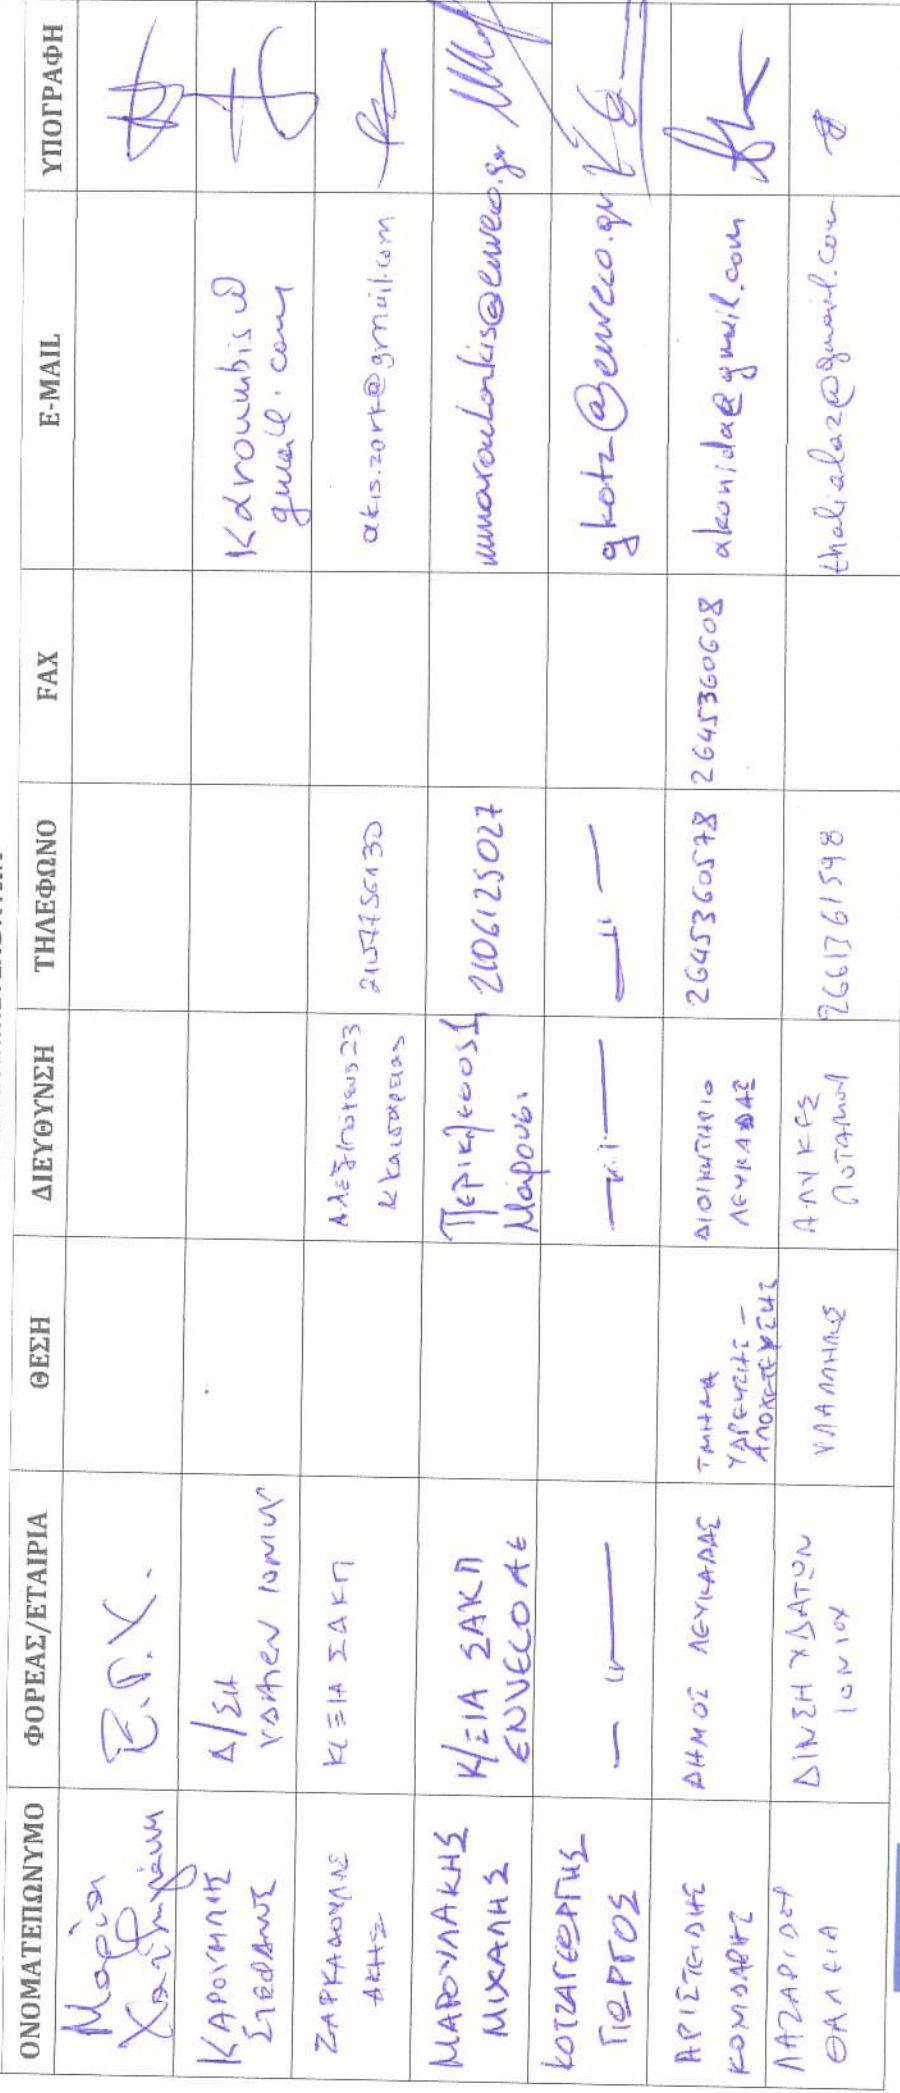 ΟΝΟΜΑΤΕΠΩΝΥΜΟ ΦΟΡΕΑΣ/ΕΤΑΙΡΙΑ ΘΕΣΗ ΔΙΕΥΘΥΝΣΗ ΤΗΛΕΦΩΝΟ FAX E-MAIL ΥΠΟΓΡΑΦΗ
Μαρία
Ε.Γ.Υ.
ΚΑΡΟΥΜΠΗΣ
ΣΤΕΦΑΝΟΣ
Δ/ΣΗ
ΥΔΑΤΩΝ ΙΟΝΙΩΝ
Karoumbis@
gmail.com
ΖΑΡΚΑΔΟΥΛΑΣ
ΑΚΗΣ
Κ/ΞΙΑ ΣΑΚΠ
23
Ν Καισάρειας
akis.zark@gmail.com
ΜΑΡΟΥΛΑΚΗΣ
ΜΙΧΑΛΗΣ
Κ/ΞΙΑ ΣΑΚΠ
ENVECO ΑΕ
Περικλέους 1,
Μαρούσι
2106125027
mmaroulakis@enveco.gr
ΚΟΤΖΑΓΕΩΡΓΗΣ
ΓΙΩΡΓΟΣ
— " —
— " —
— " —
gkotz@enveco.gr
ΑΡΙΣΤΕΙΔΗΣ
ΚΟΝΙΔΑΡΗΣ
ΔΗΜΟΣ ΛΕΥΚΑΔΑΣ
ΤΜΗΜΑ
ΥΔΡΕΥΣΗΣ –
ΑΠΟΧΕΤΕΥΣΗΣ
ΔΙΟΙΚΗΤΗΡΙΟ
ΛΕΥΚΑΔΑΣ
2645360578
2645360608
akonida@gmail.com
ΛΑΖΑΡΙΔΟΥ
ΘΑΛΕΙΑ
ΔΙΝΣΗ ΥΔΑΤΩΝ
ΙΟΝΙΟΥ
ΥΠΑΛΛΗΛΟΣ
ΑΛΥΚΕΣ
ΠΟΤΑΜΟΥ
2661361598
thalialaz@gmail.com